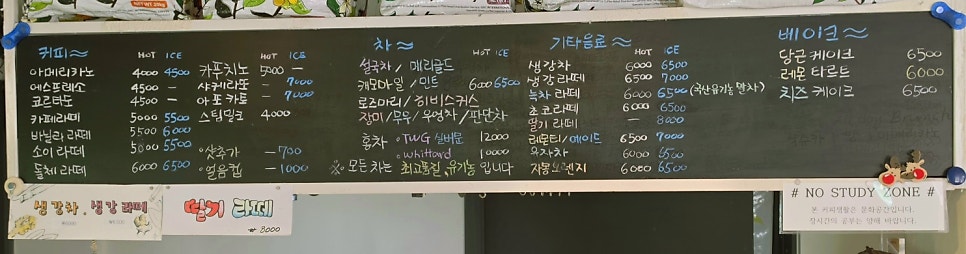 커피≈ HOT ICE HOT ICE
아메리카노 4000 4500
에스프레소 4500 —
코르타도 4500 —
카페라떼 5000 5500
바닐라 라떼 5500 6000
소이 라떼 5000 5500
돌체 라떼 6000 6500
카푸치노 5000 —
샤케라또 — 7000
아포카토 — 7000
스팀밀크 4000
샷추가 — 700
얼음컵 — 1000
차≈ HOT ICE
설국차 / 메리골드
캐모마일 / 민트 6000 6500
로즈마리 / 히비스커스
장미 / 무우 / 우엉차 / 판단차
홍차 TWG 실버문 12000
Whittard 10000
※ 모든 차는 최고품질, 유기농 입니다
기타음료≈ HOT ICE
생강차 6000 6500
생강라떼 6500 7000
녹차 라떼 6000 6500 (국산유기농 말차)
초코라떼 6000 6500
딸기 라떼 — 8000
레몬티 / 에이드 6500 7000
유자차 6000 6500
자몽오렌지 6000 6500
베이크≈
당근 케이크 6500
레몬 타르트 6000
치즈 케이크 6500
생강차. 생강 라떼
딸기 라떼
8000
# NO STUDY ZONE #
본 커피생활은 문화공간입니다.
장시간의 공부는 양해 바랍니다.